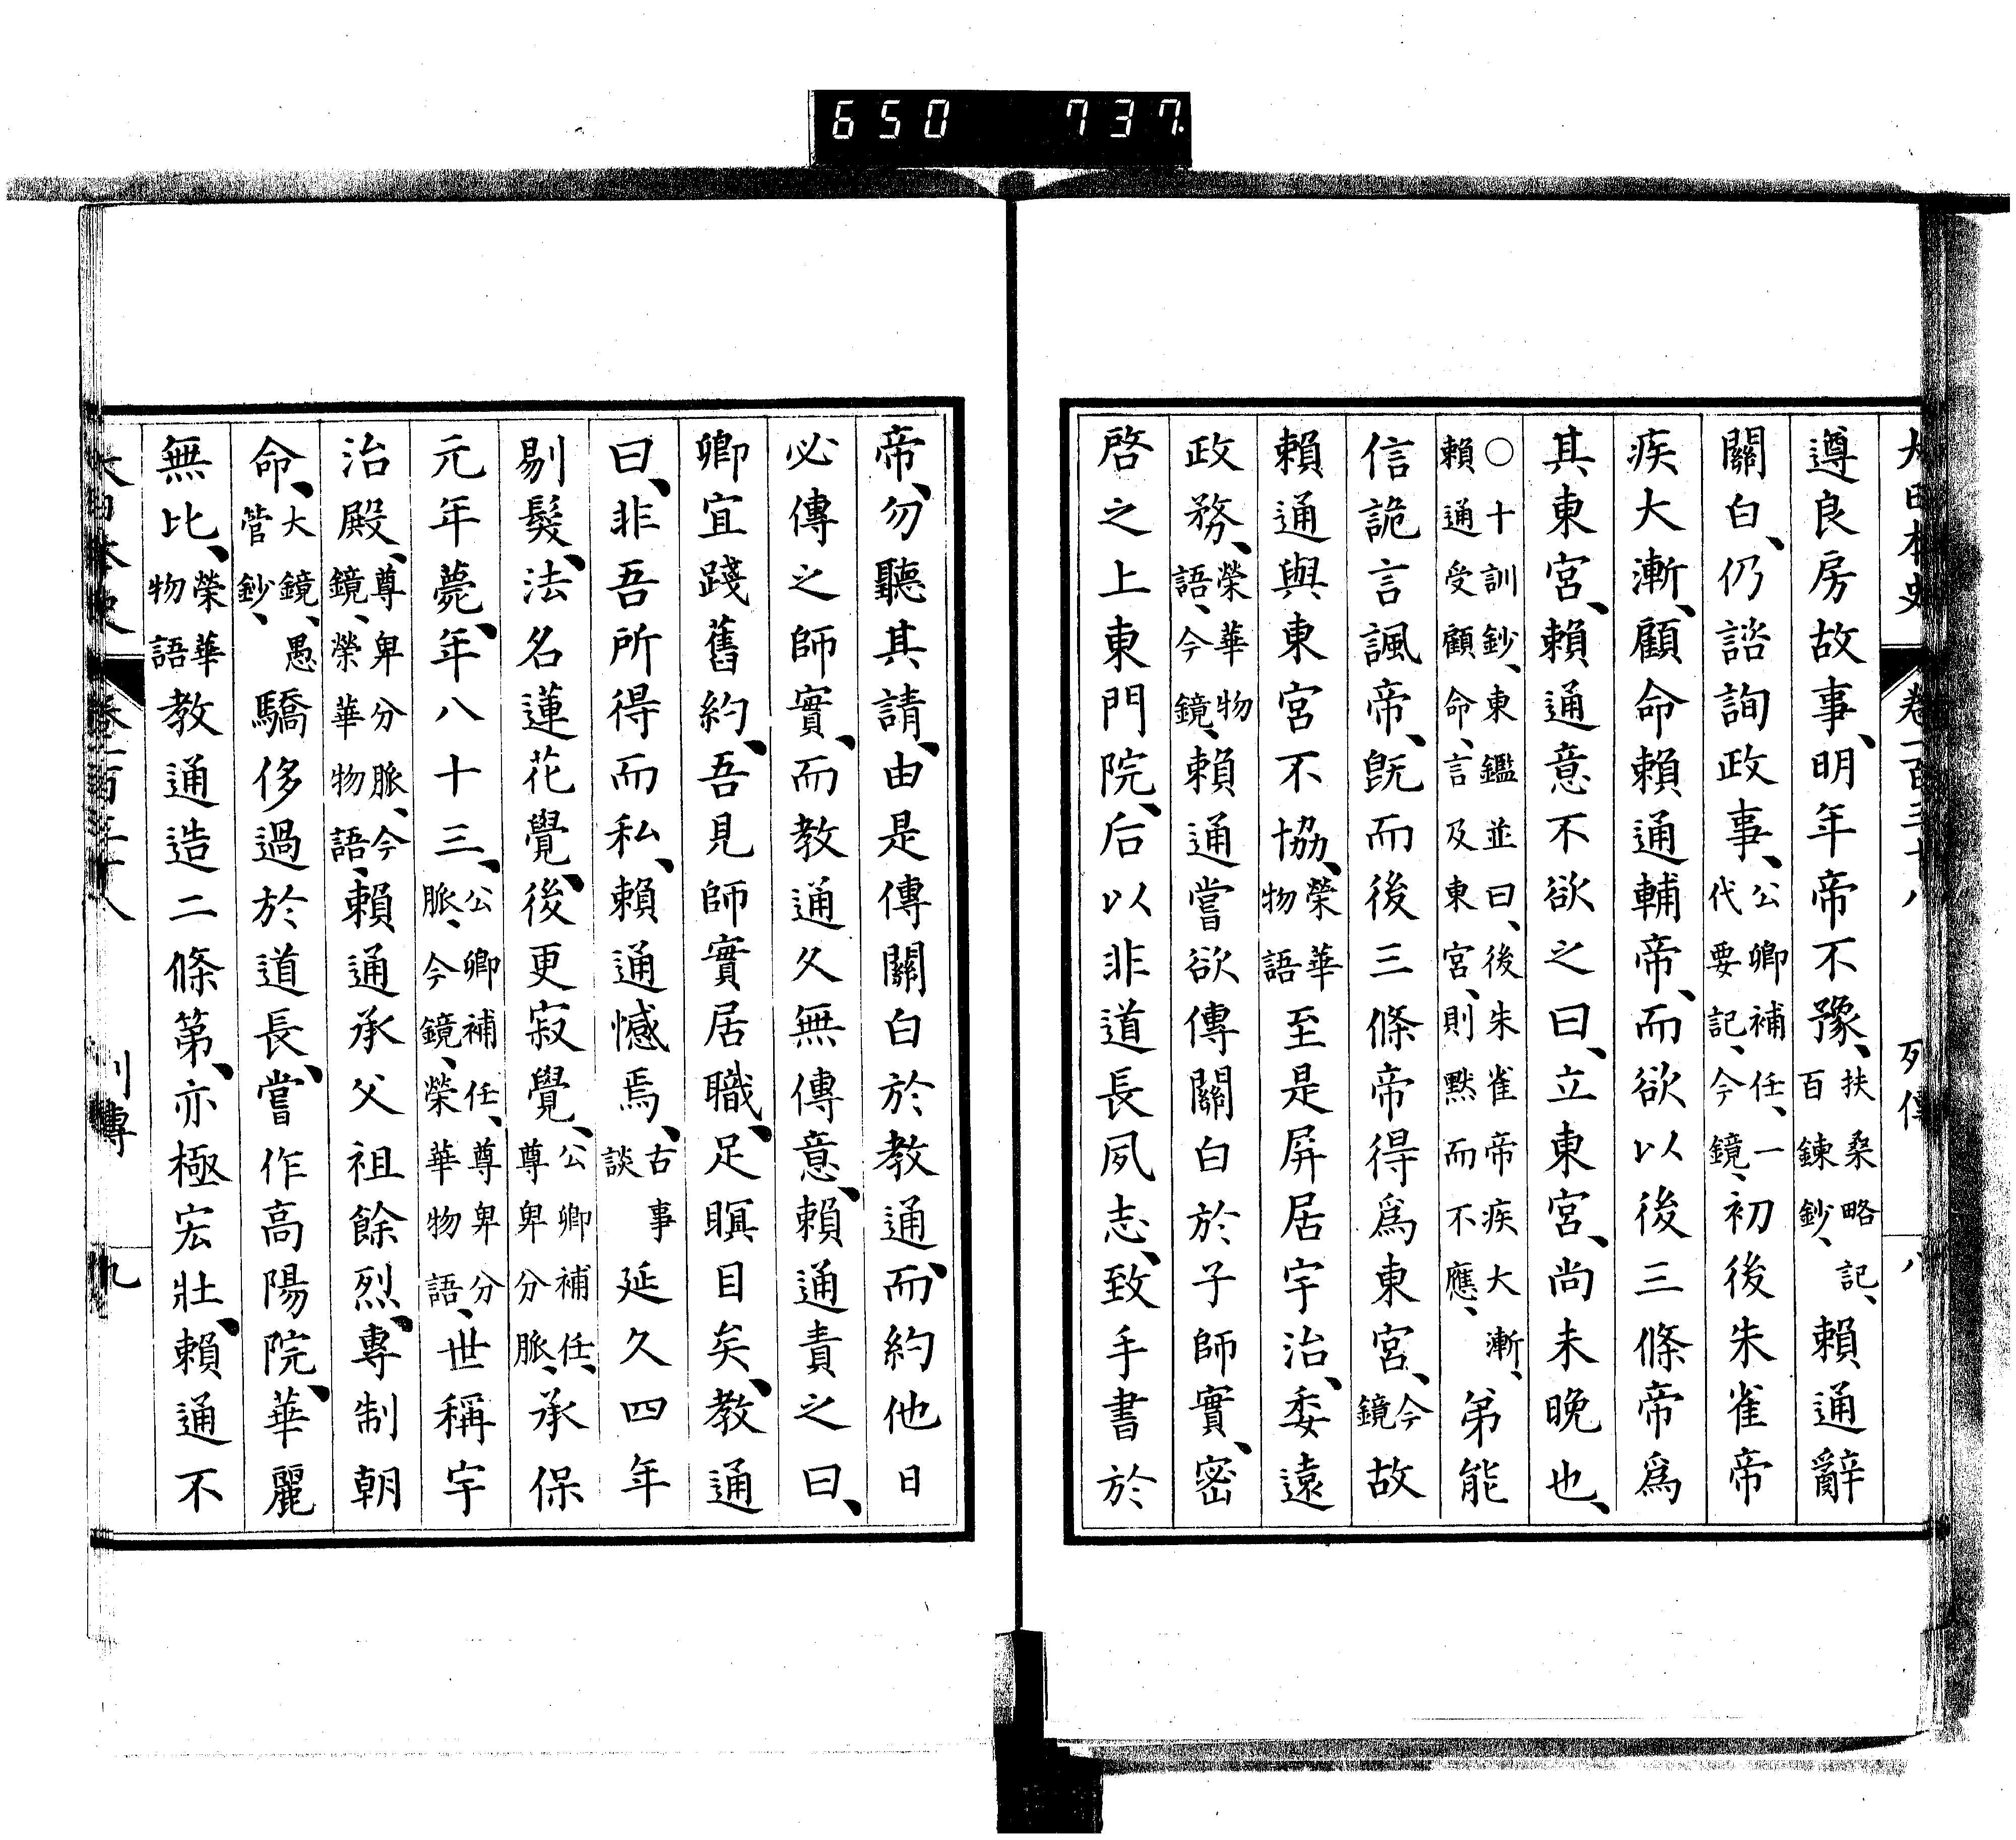 650 737.
大日本史 卷一百三十八 列傳 八
遵良房故事、明年帝不豫、扶桑略記、百鍊鈔、賴通辭
關白、仍諮詢政事、公卿補任、一代要記、今鏡、初後朱雀帝
疾大漸、顧命賴通輔帝、而欲以後三條帝爲
其東宮、賴通意不欲之曰、立東宮、尚未晚也、
○十訓鈔、東鑑並曰、後朱雀帝疾大漸、賴通受顧命、言及東宮、則默而不應、弟能
信詭言諷帝、既而後三條帝得爲東宮、今鏡故
賴通與東宮不協、榮華物語至是屏居宇治、委遠
政務、榮華物語、今鏡、賴通嘗欲傳關白於子師實、密
啓之上東門院、后以非道長夙志、致手書於
帝、勿聽其請、由是傳關白於教通、而約他日
必傳之師實、而教通久無傳意、賴通責之曰、
卿宜踐舊約、吾見師實居職、足瞑目矣、教通
曰、非吾所得而私、賴通憾焉、古事談延久四年
剔髮、法名蓮花覺、後更寂覺、公卿補任、尊卑分脈、承保
元年薨、年八十三、公卿補任、尊卑分脈、今鏡、榮華物語、世稱宇
治殿、尊卑分脈、今鏡、榮華物語、賴通承父祖餘烈、專制朝
命、大鏡、愚管鈔、驕侈過於道長、嘗作高陽院、華麗
無比、榮華物語教通造二條第、亦極宏壯、賴通不
大日本史 卷一百三十八 列傳 九